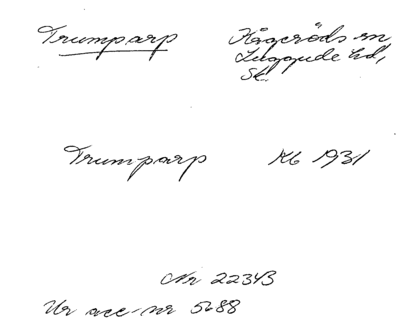 Trumparp Kågeröds sn
Luggude hd,
Sk.
Trumparp Kb 1931
Nr 2234B
Ur acc-nr 5688